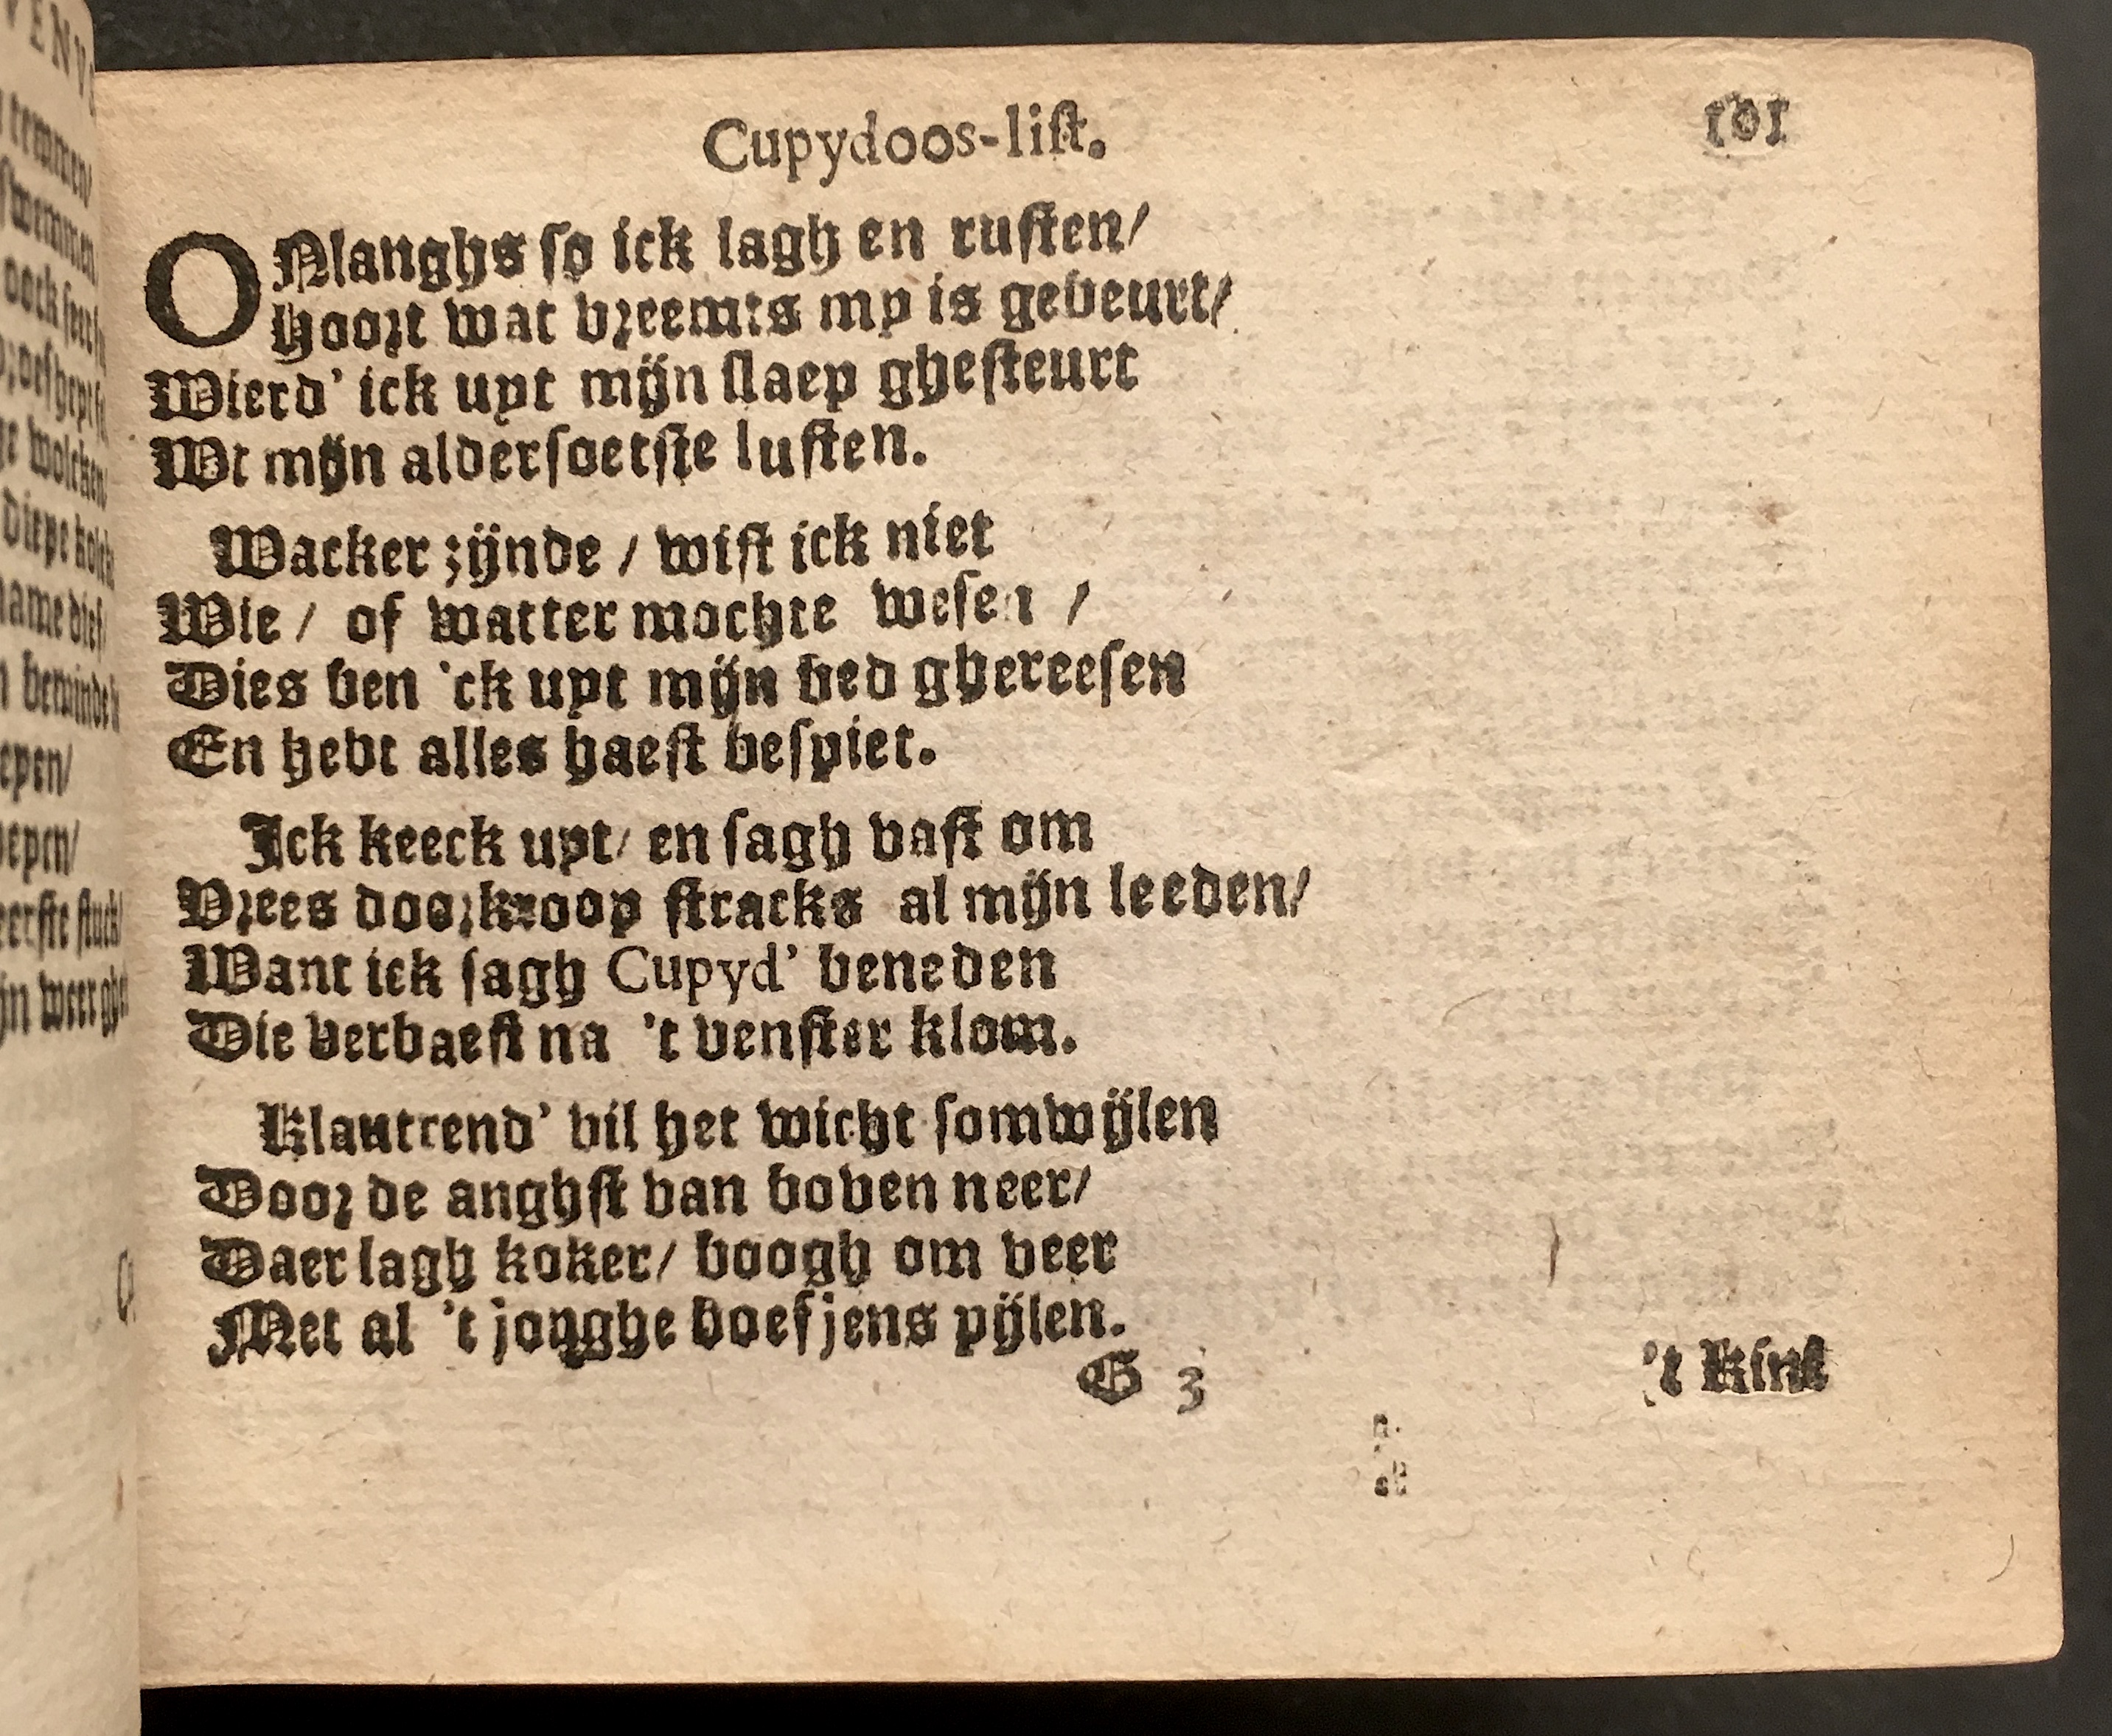 Cupydoos-liſt.
101
ONlanghs ſo ick lagh en ruſten/
Hoort wat vreemts my is gebeurt/
Wierd' ick uyt mijn ſlaep gheſteurt
Wt mijn alderſoetſte luſten.
Wacker zijnde / wiſt ick niet
Wie / of watter mochte weſen /
Dies ben 'ck uyt mijn bed ghereeſen
En hebt alles haeſt beſpiet.
Ick keeck uyt/ en ſagh vaſt om
Vrees doorkroop ſtracks al mijn leeden/
Want ick ſagh Cupyd' beneden
Die verbaeſt na 't venſter klom.
Klautrend' vil het wicht ſomwijlen
Door de anghſt van boven neer/
Daer lagh koker/ boogh om veer
Met al 't jonghe boefjens pijlen.
G 3
't Kint
temmen/
ſwemmen
oock
wolcken
diepe
epen/
eerſte ſtuck